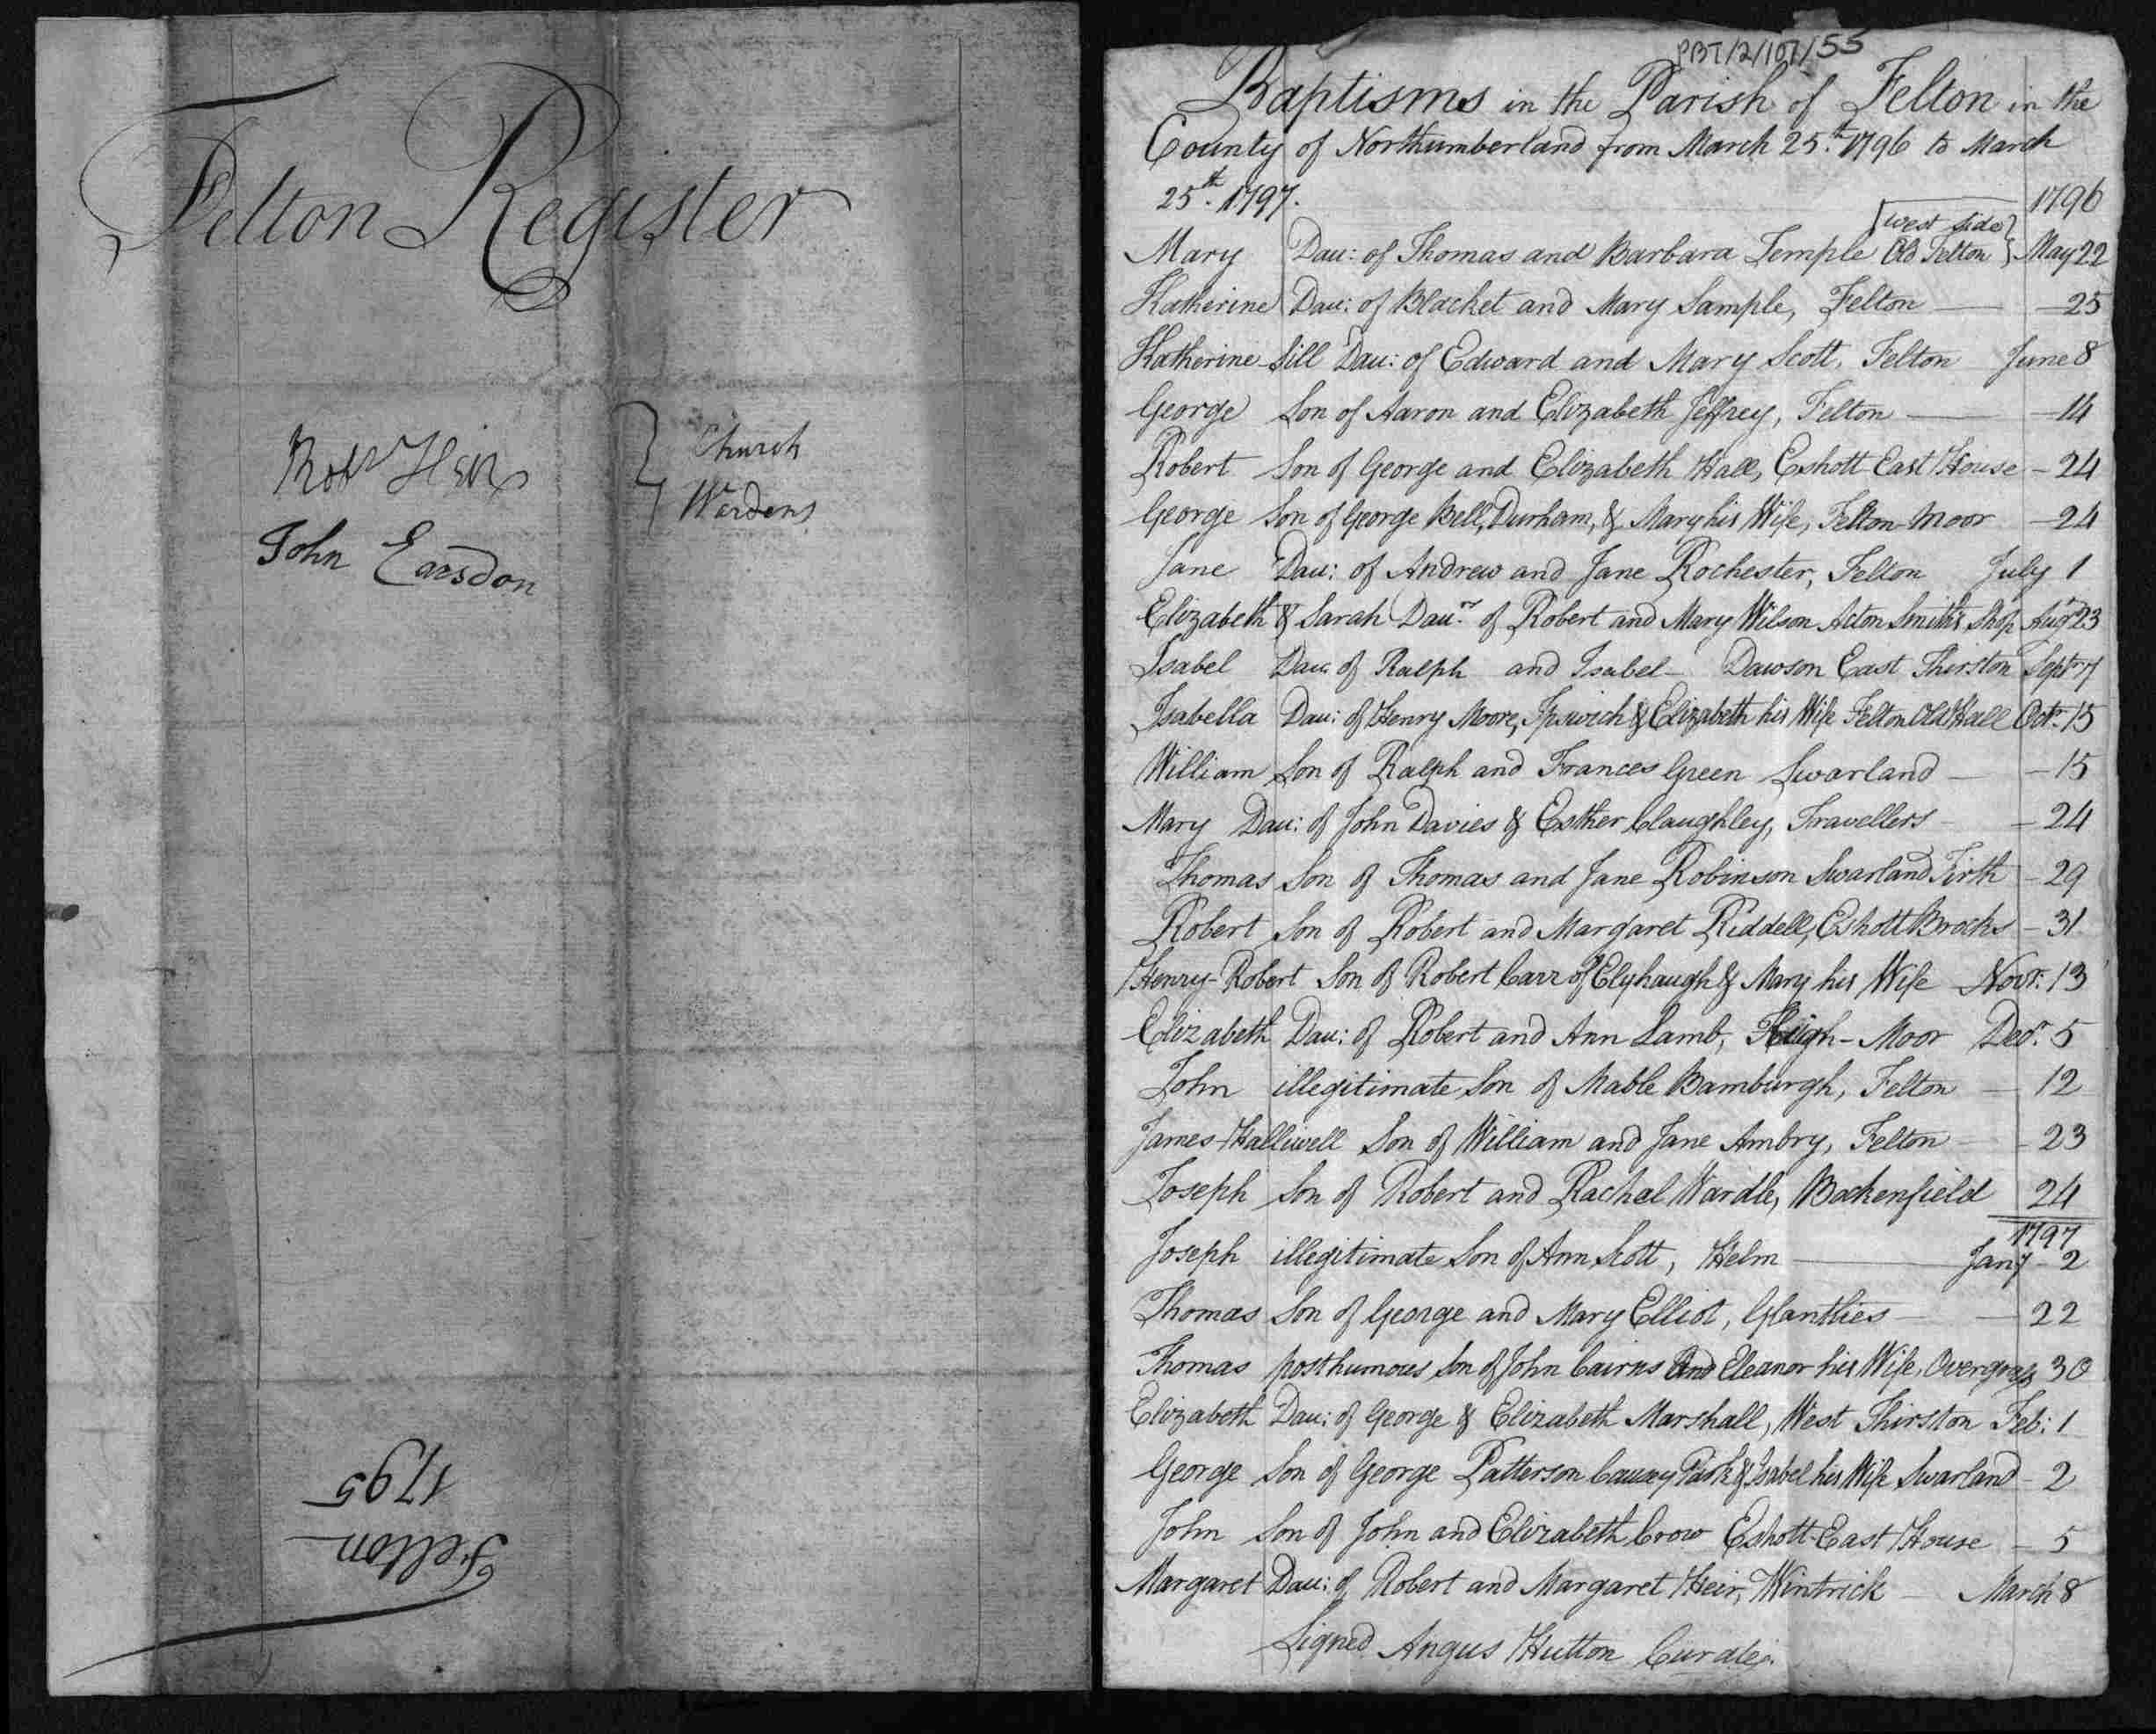 Felton Register
Robt Heir } Church
John Earsdon } Wardens
Felton
1795
PBT/2/107/55
Baptisms in the Parish of Felton in the
County of Northumberland from March 25.th 1796 to March
25th. 1797. 1796
Mary Dau: of Thomas and Barbara Temple [West side Old Felton } May 22
Katherine Dau: of Blacket and Mary Sample, Felton — 25
Katherine-Sill Dau: of Edward and Mary Scott, Felton June 8
George Son of Aaron and Elizabeth Jeffrey, Felton — 14
Robert Son of George and Elizabeth Hall, Eshott East House - 24
George Son of George Bell, Durham, & Mary his Wife, Felton-Moor - 24
Jane Dau: of Andrew and Jane Rochester, Felton July 1
Elizabeth & Sarah Daurs of Robert and Mary Wilson Acton Smith's Shop Augt 23
Isabel Dau: of Ralph and Isabel - Dawson East Thirston Septr 7
Isabella Dau: of Henry Moore, Ipswich & Elizabeth his Wife Felton Old Hall Octr. 15
William Son of Ralph and Frances Green Swarland — 15
Mary Dau: of John Davies & Esther Claughley, Travellers — 24
Thomas Son of Thomas and Jane Robinson Swarland Firth - 29
Robert Son of Robert and Margaret Riddell, Eshott Brocks - 31
Henry-Robert Son of Robert Carr of Elyhaugh & Mary his Wife Novr. 13
Elizabeth Dau: of Robert and Ann Lamb, High-Moor Decr. 5
John illegitimate Son of Mable Bamburgh, Felton — 12
James-Halliwell Son of William and Jane Ambry, Felton — 23
Joseph Son of Robert and Rachel Wardle, Bockenfield 24
1797
Joseph illegitimate Son of Ann Scott, Helm — Jany - 2
Thomas Son of George and Mary Elliot, Glantlies — 22
Thomas posthumous Son of John Cairns And Eleanor his Wife, Overgrass 30
Elizabeth Dau: of George & Elizabeth Marshall, West Thirston Feb: 1
George Son of George Patterson Causey Park & Isabel his Wife Swarland - 2
John Son of John and Elizabeth Crow Eshott-East House - 5
Margaret Dau: of Robert and Margaret Heir, Wintrick — March 8
Signed Angus Hutton Curate.